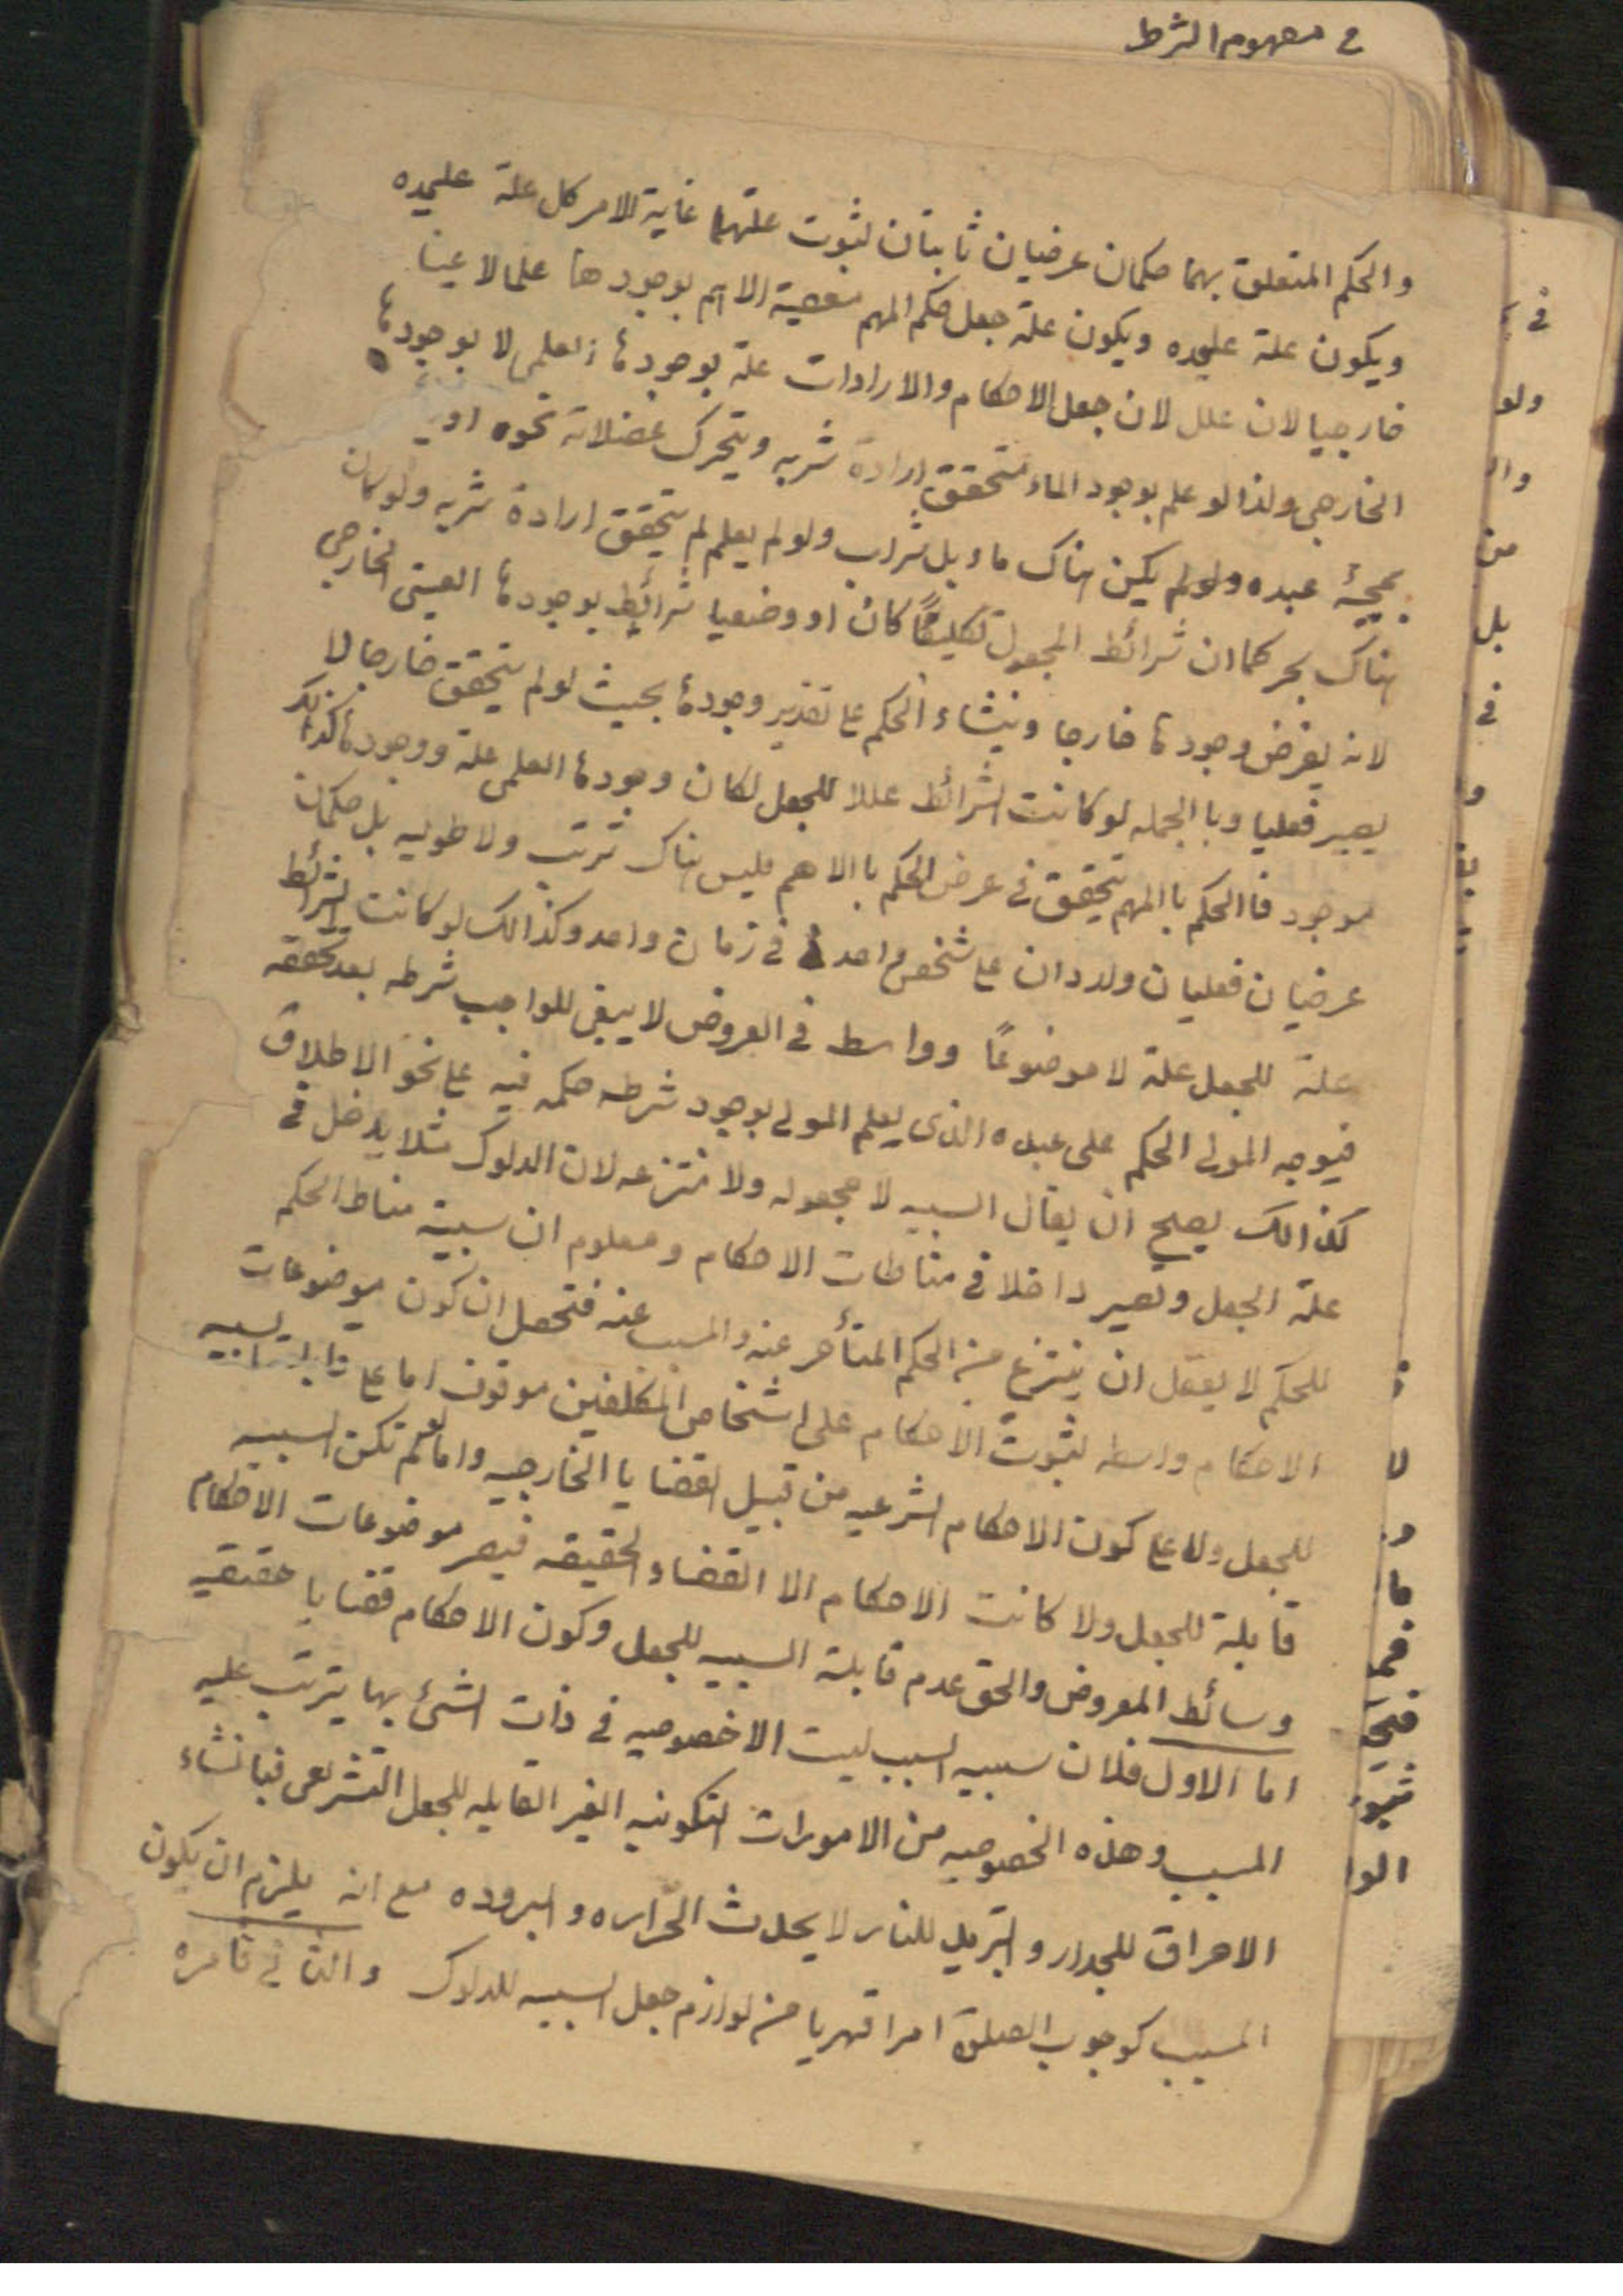 في مفهوم الشرط
والحكم المتعلق بهما حكمان عرضيان ثابتان لثبوت علتهما غاية الامر كل علة عليحده
ويكون علة عليحده ويكون علة جعل حكم المهم معصية الاهم بوجودها علما لا عينا
خارجيا لان علل لان جعل الاحكام والارادات علة بوجودها العلمى لا بوجودها
الخارجى ولذا لو علم بوجود الماء متحقق ارادة شربه ويتحرك عضلاته نحوه او
بمجيئ عبده ولو لم يكن هناك ماء بل شراب ولو لم يعلم لم يتحقق ارادة شربه ولو كان
هناك بحر كما ان شرائط المجعول تكليفًا كان او وضعيا شرائط بوجودها العينى الخارجى
لانه يفرض وجودها خارجا وينشاء الحكم على تقدير وجودها بحيث لو لم يتحقق خارجا لا
يصير فعليا وبا الجمله لو كانت الشرائط عللا للجعل لكان وجودها العلمى علة ووجودها كذلك
موجود فا الحكم با المهم يتحقق في عرض الحكم با الاهم فليس هناك ترتب ولا طوليه بل حكمان
عرضيان فعليان ولدان على شخص واحد في زمان واحد وكذالك لو كانت الشرائط
علة للجعل علة لا موضوعًا وواسط في العروض لا يبقى للواجب شرطه بعد تحققه
فيوجه المولى الحكم على عبده الذى يعلم المولى بوجود شرطه حكمه فيه على نحو الاطلاق
كذالك يصح ان يقال السببيه لا مجعوله ولا منتزعه لان الدلوك مثلا يدخل في
علة الجعل وتصير داخلا في مناطات الاحكام ومعلوم ان سببية مناط الحكم
للحكم لا يعقل ان ينتزع من الحكم المتأخر عنه والمسبب عنه فتحصل ان كون موضوعات
الاحكام واسطه لثبوت الاحكام على اشخاص المكلفين موقوف اما على قابلية السببيه
للجعل ولا على كون الاحكام الشرعيه من قبيل القضايا الخارجيه واما لو لم تكن السببيه
قابلة للجعل ولا كانت الاحكام الا القضاء الحقيقه فيصر موضوعات الاحكام
وسائط المعروض والحق عدم قابلة السببيه للجعل وكون الاحكام قضايا حقيقيه
اما الاول فلان سببيه السبب ليست الا خصوصيه في ذات الشئ بها يترتب عليه
المسبب وهذه الخصوصيه من الامورات التكوينيه الغير القابله للجعل التشريعى فبانشاء
الاحراق للجدار والتبريد للنار لا يحدث الحراره والبروده مع انه يلزم ان يكون
المسبب كوجوب الصلوة امرا قهريا من لوازم جعل السببيه للدلوك والثانى في نامره
ولو
من
بل
في
لا
ما
الوا